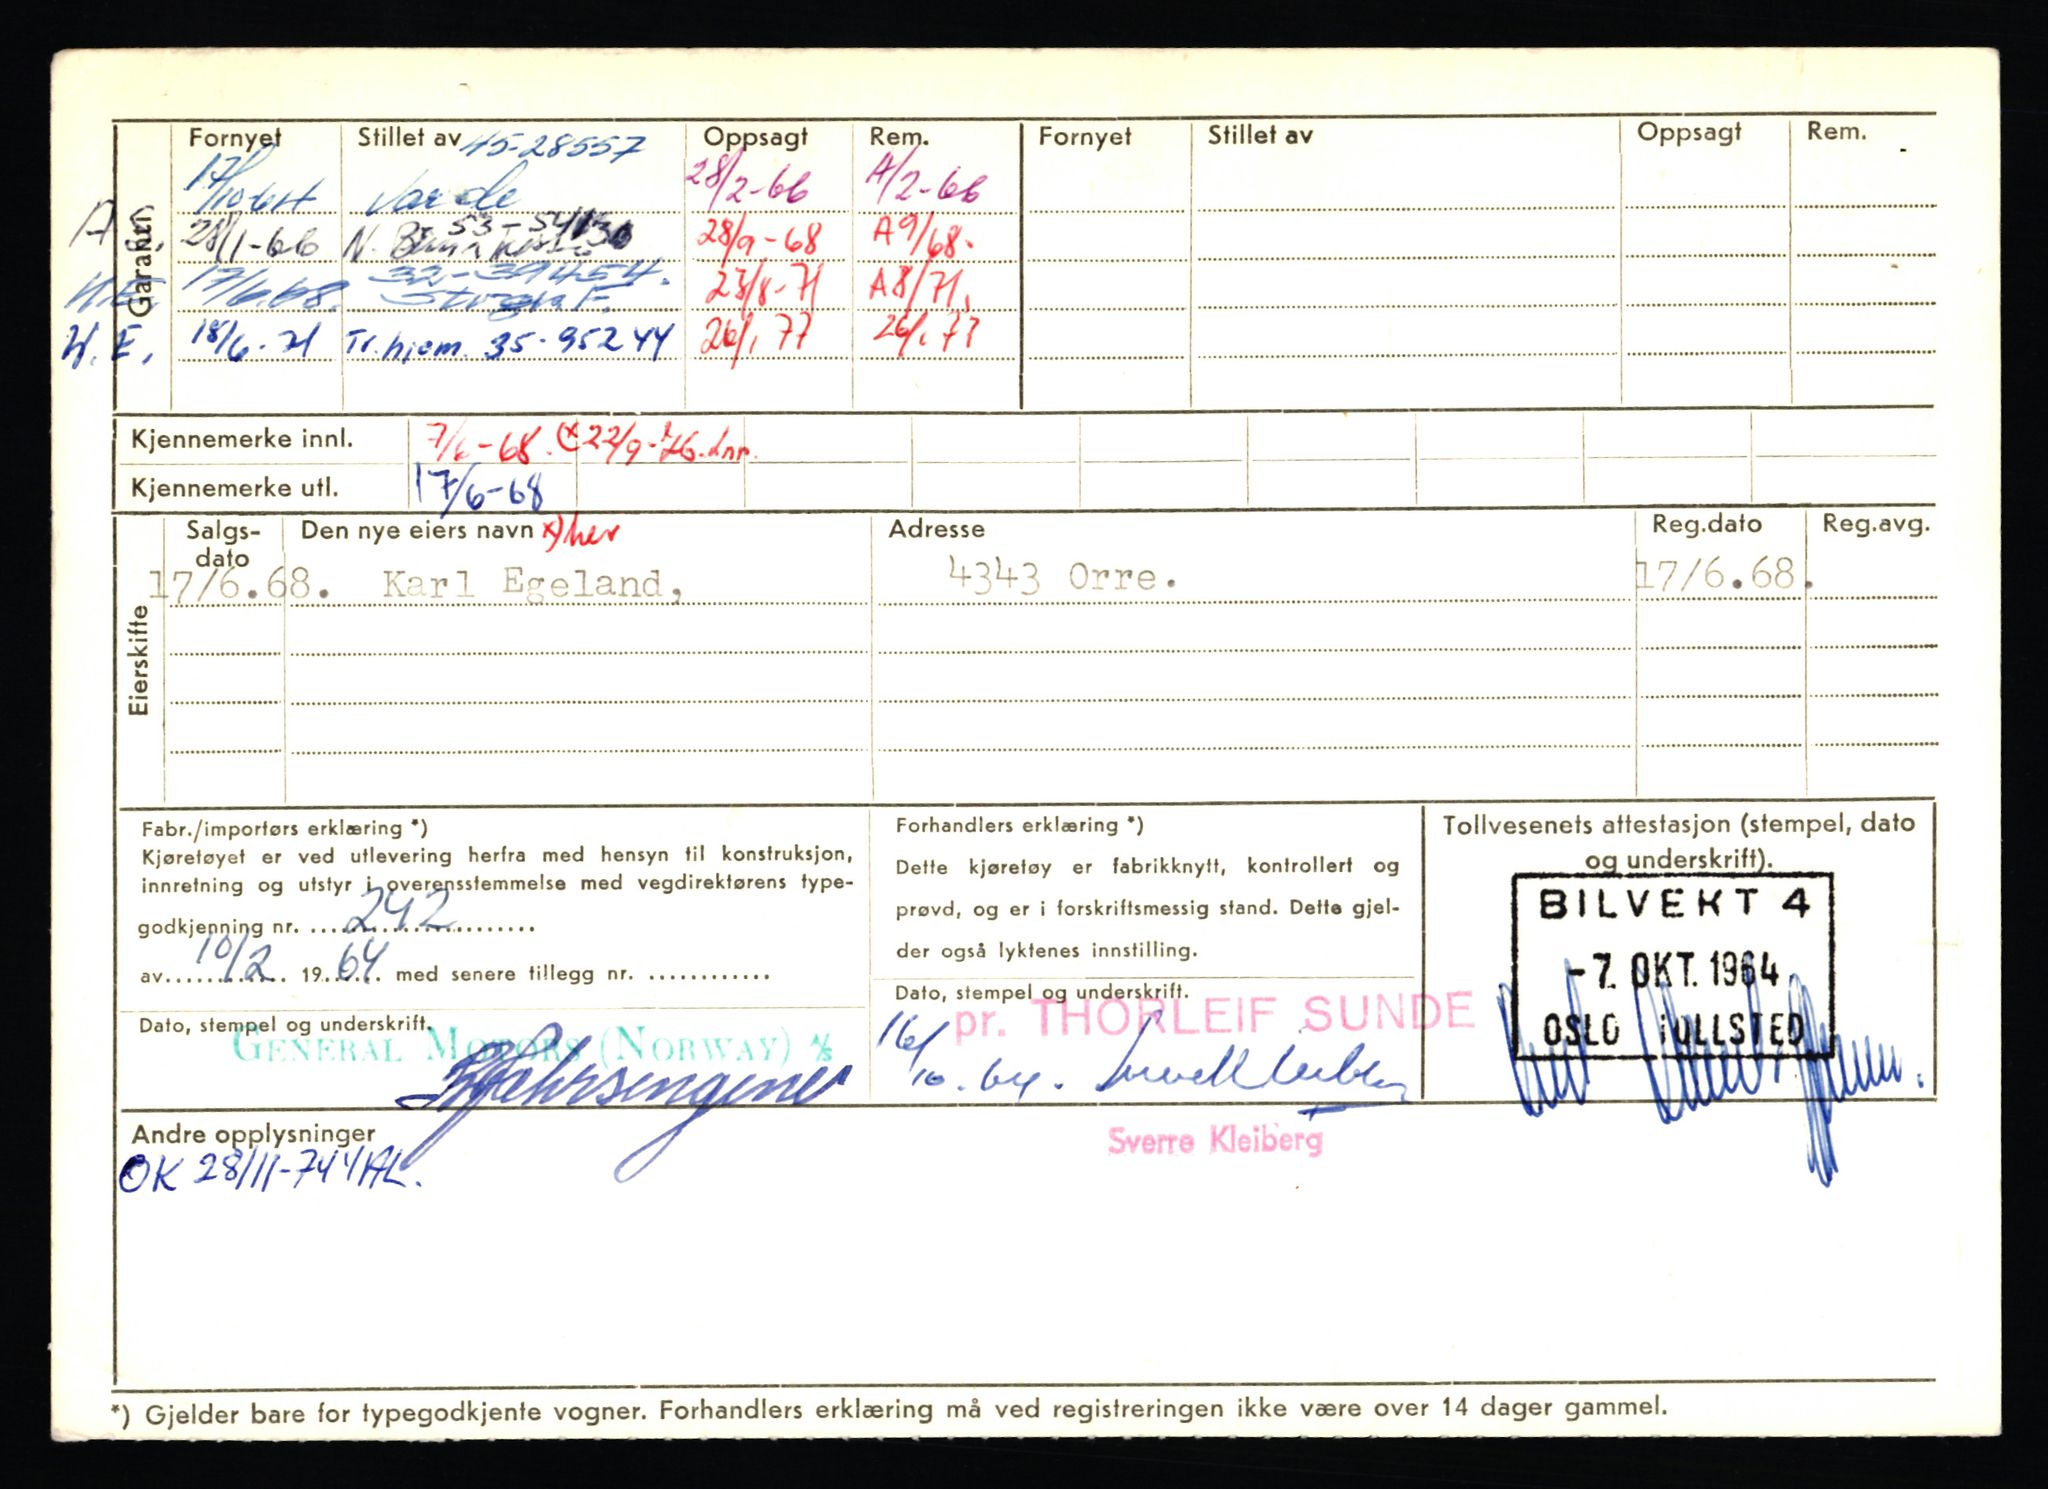 Garanti
Fornyet Stillet av Oppsagt Rem. Fornyet Stillet av Oppsagt Rem.
45-28557
17/10 64 Varde 28/2-66 A/2-66
28/1-66 N. 53-54130 28/9-68 A9/68.
17/6.68. 32-39454. 23/8-71 A8/71.
H.E. 18/6-71 Tr.hjem. 35-95244 26/1 77 26/1 77
Kjennemerke innl. 7/6-68. (x 22/9-76.
Kjennemerke utl. 17/6-68
Eierskifte
Salgsdato Den nye eiers navn x) her Adresse Reg.dato Reg.avg.
17/6.68. Karl Egeland, 4343 Orre. 17/6.68.
Fabr./importørs erklæring *)
Kjøretøyet er ved utlevering herfra med hensyn til konstruksjon,
innretning og utstyr i overensstemmelse med vegdirektørens type-
godkjenning nr. 242
av 10/2 1964 med senere tillegg nr. ............
Dato, stempel og underskrift.
GENERAL MOTORS (NORWAY) A/S
Forhandlers erklæring *)
Dette kjøretøy er fabrikknytt, kontrollert og
prøvd, og er i forskriftsmessig stand. Dette gjel-
der også lyktenes innstilling.
Dato, stempel og underskrift.
pr. THORLEIF SUNDE
16/10.64.
Sverre Kleiberg
Tollvesenets attestasjon (stempel, dato
og underskrift).
BILVEKT 4
-7. OKT. 1964
OSLO TOLLSTED
Andre opplysninger
OK 28/11-74
*) Gjelder bare for typegodkjente vogner. Forhandlers erklæring må ved registreringen ikke være over 14 dager gammel.